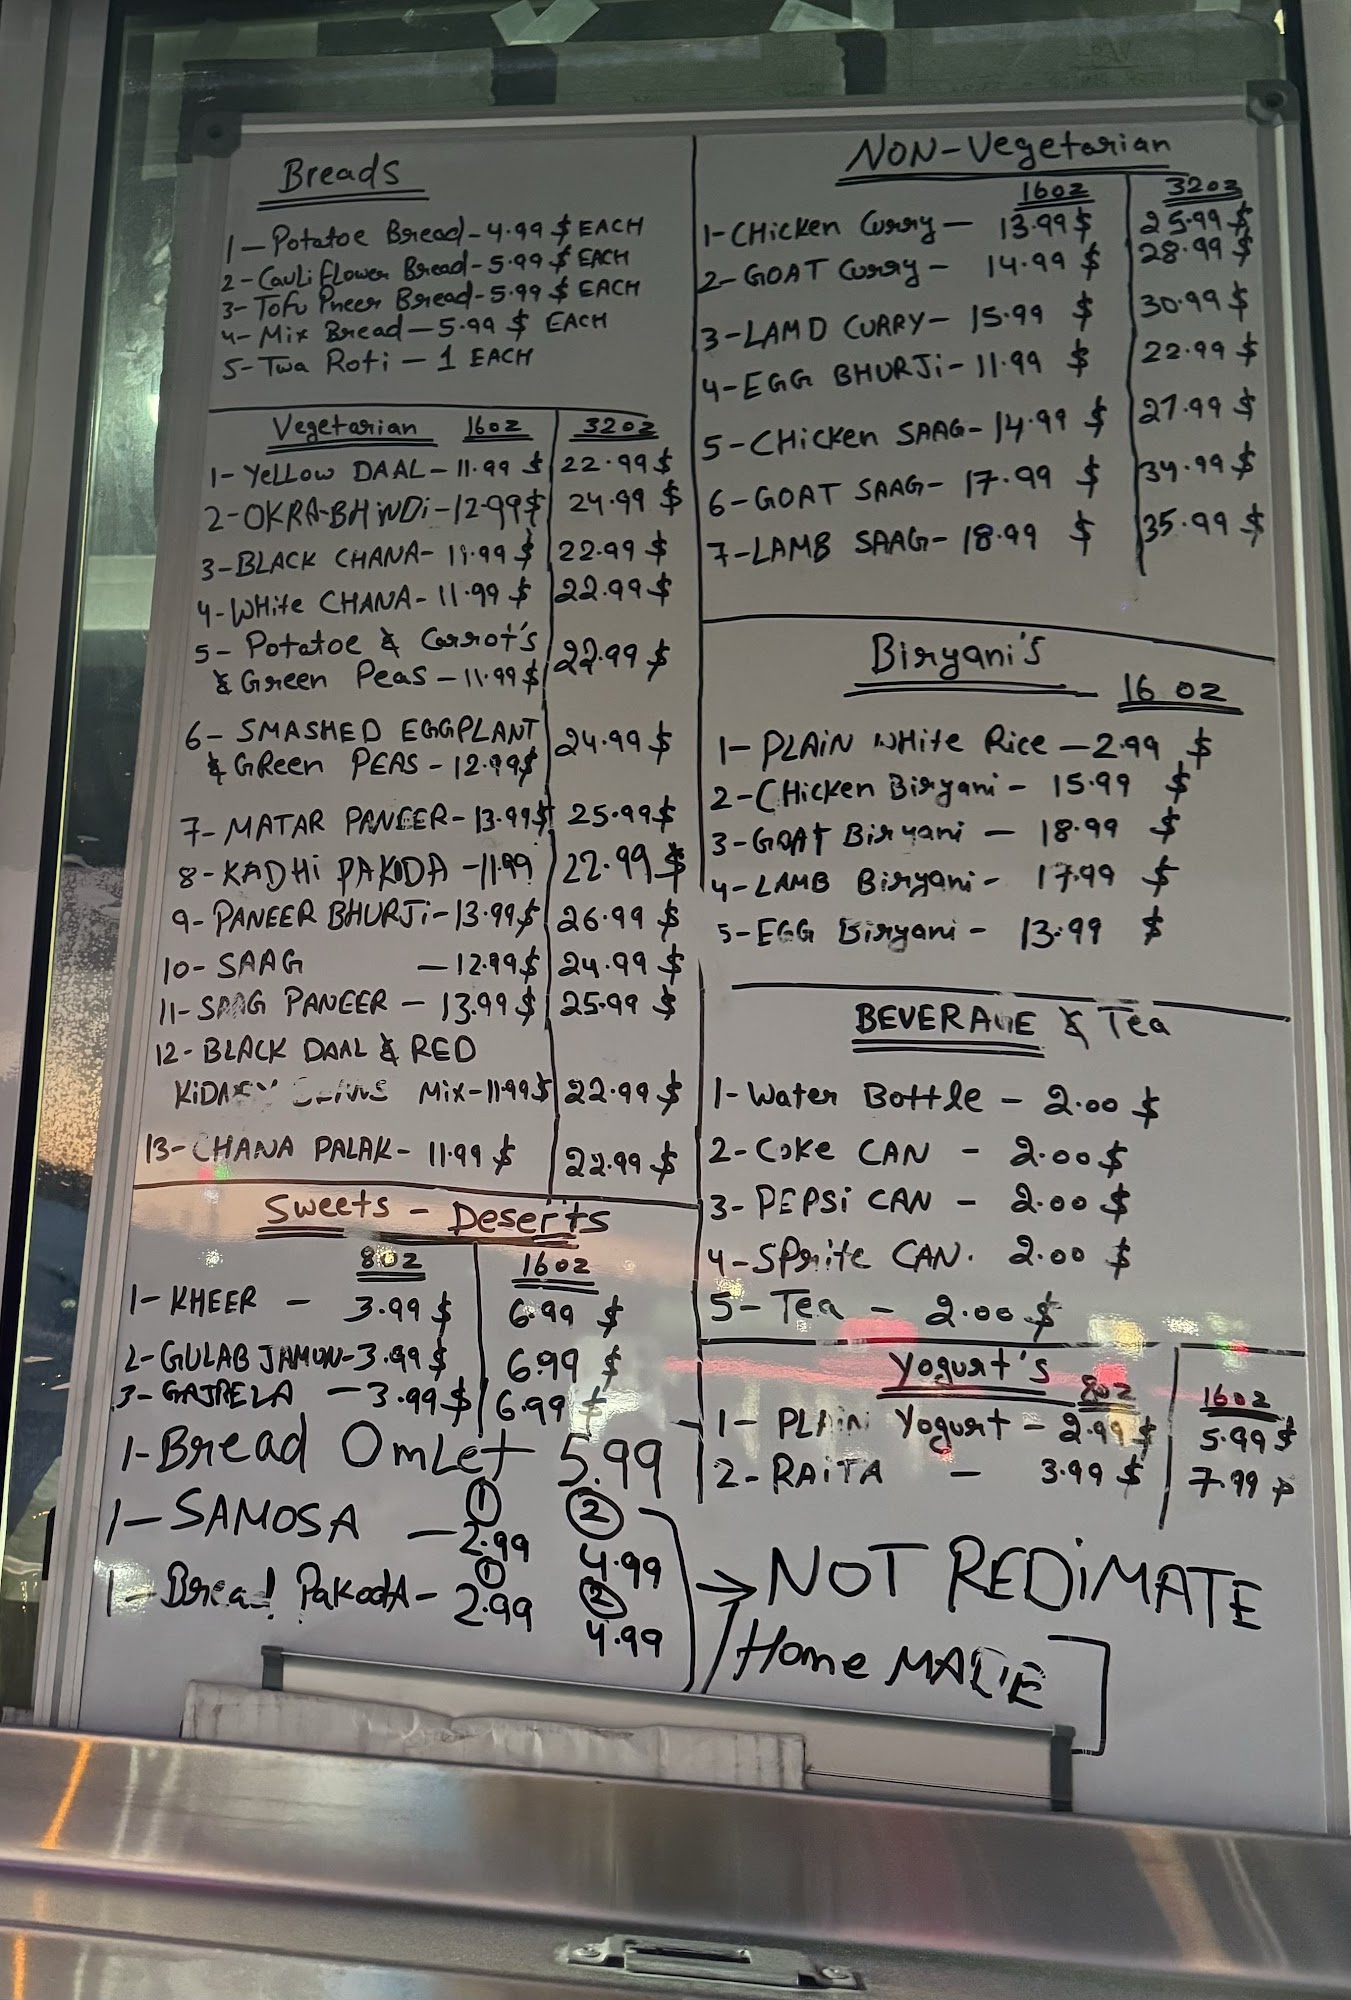 Breads
1-Potatoe Bread-4.99 $ EACH
2-Cauliflower Bread-5.99 $ EACH
3-Tofu Pneer Bread-5.99 $ EACH
4-Mix Bread-5.99 $ EACH
5-Twa Roti - 1 EACH
Vegetarian 16oz 32oz
1-Yellow DAAL-11.99 $ 22.99 $
2-OKRA-BHiNDi-12.99$ 24.99 $
3-BLACK CHANA-11.99 $ 22.99 $
4-WHite CHANA-11.99 $ 22.99 $
5- Potatoe & Carrot's
& Green Peas-11.99 $ 22.99 $
6- SMASHED EGGPLANT
& GReen PEAS-12.99$ 24.99 $
7-MATAR PANEER-13.99$ 25.99$
8-KADHi PAKODA-11.99 22.99 $
9-PANEER BHURJi-13.99$ 26.99 $
10-SAAG -12.99$ 24.99 $
11-SAAG PANEER - 13.99 $ 25.99 $
12-BLACK DAAL & RED
KiDNEY Mix-11.99$ 22.99 $
13-CHANA PALAK- 11.99 $ 22.99 $
Sweets - Deserts
8oz 16oz
1-KHEER - 3.99 $ 6.99 $
2-GULAB JAMUN-3.99 $ 6.99 $
3-GAJRELA -3.99 $ 6.99 $
1-Bread OmLet 5.99
1-SAMOSA - ① 2.99 ② 4.99
1-Bread PakodA- ① 2.99 ② 4.99
NON-Vegetarian
16oz 32oz
1-CHicken Curry- 13.99 $ 25.99 $
2-GOAT Curry- 14.99 $ 28.99 $
3-LAMD CURRY- 15.99 $ 30.99 $
4-EGG BHURJi-11.99 $ 22.99 $
5-CHicken SAAG-14.99 $ 27.99 $
6-GOAT SAAG- 17.99 $ 34.99 $
7-LAMB SAAG-18.99 $ 35.99 $
Biryani's 16 oz
1-PLAiN WHite Rice-2.99 $
2-CHicken Biryani- 15.99 $
3-GOAT Biryani - 18.99 $
4-LAMB Biryani- 17.99 $
5-EGG Biryani- 13.99 $
BEVERAGE & Tea
1-Water Bottle - 2.00 $
2-Coke CAN - 2.00 $
3-PEPSi CAN - 2.00 $
4-SPrite CAN. 2.00 $
5-Tea - 2.00 $
Yogurt's 8oz 16oz
1- PLAiN Yogurt-2.99 $ 5.99 $
2-RAiTA - 3.99 $ 7.99 $
NOT REDiMATE
Home MADE